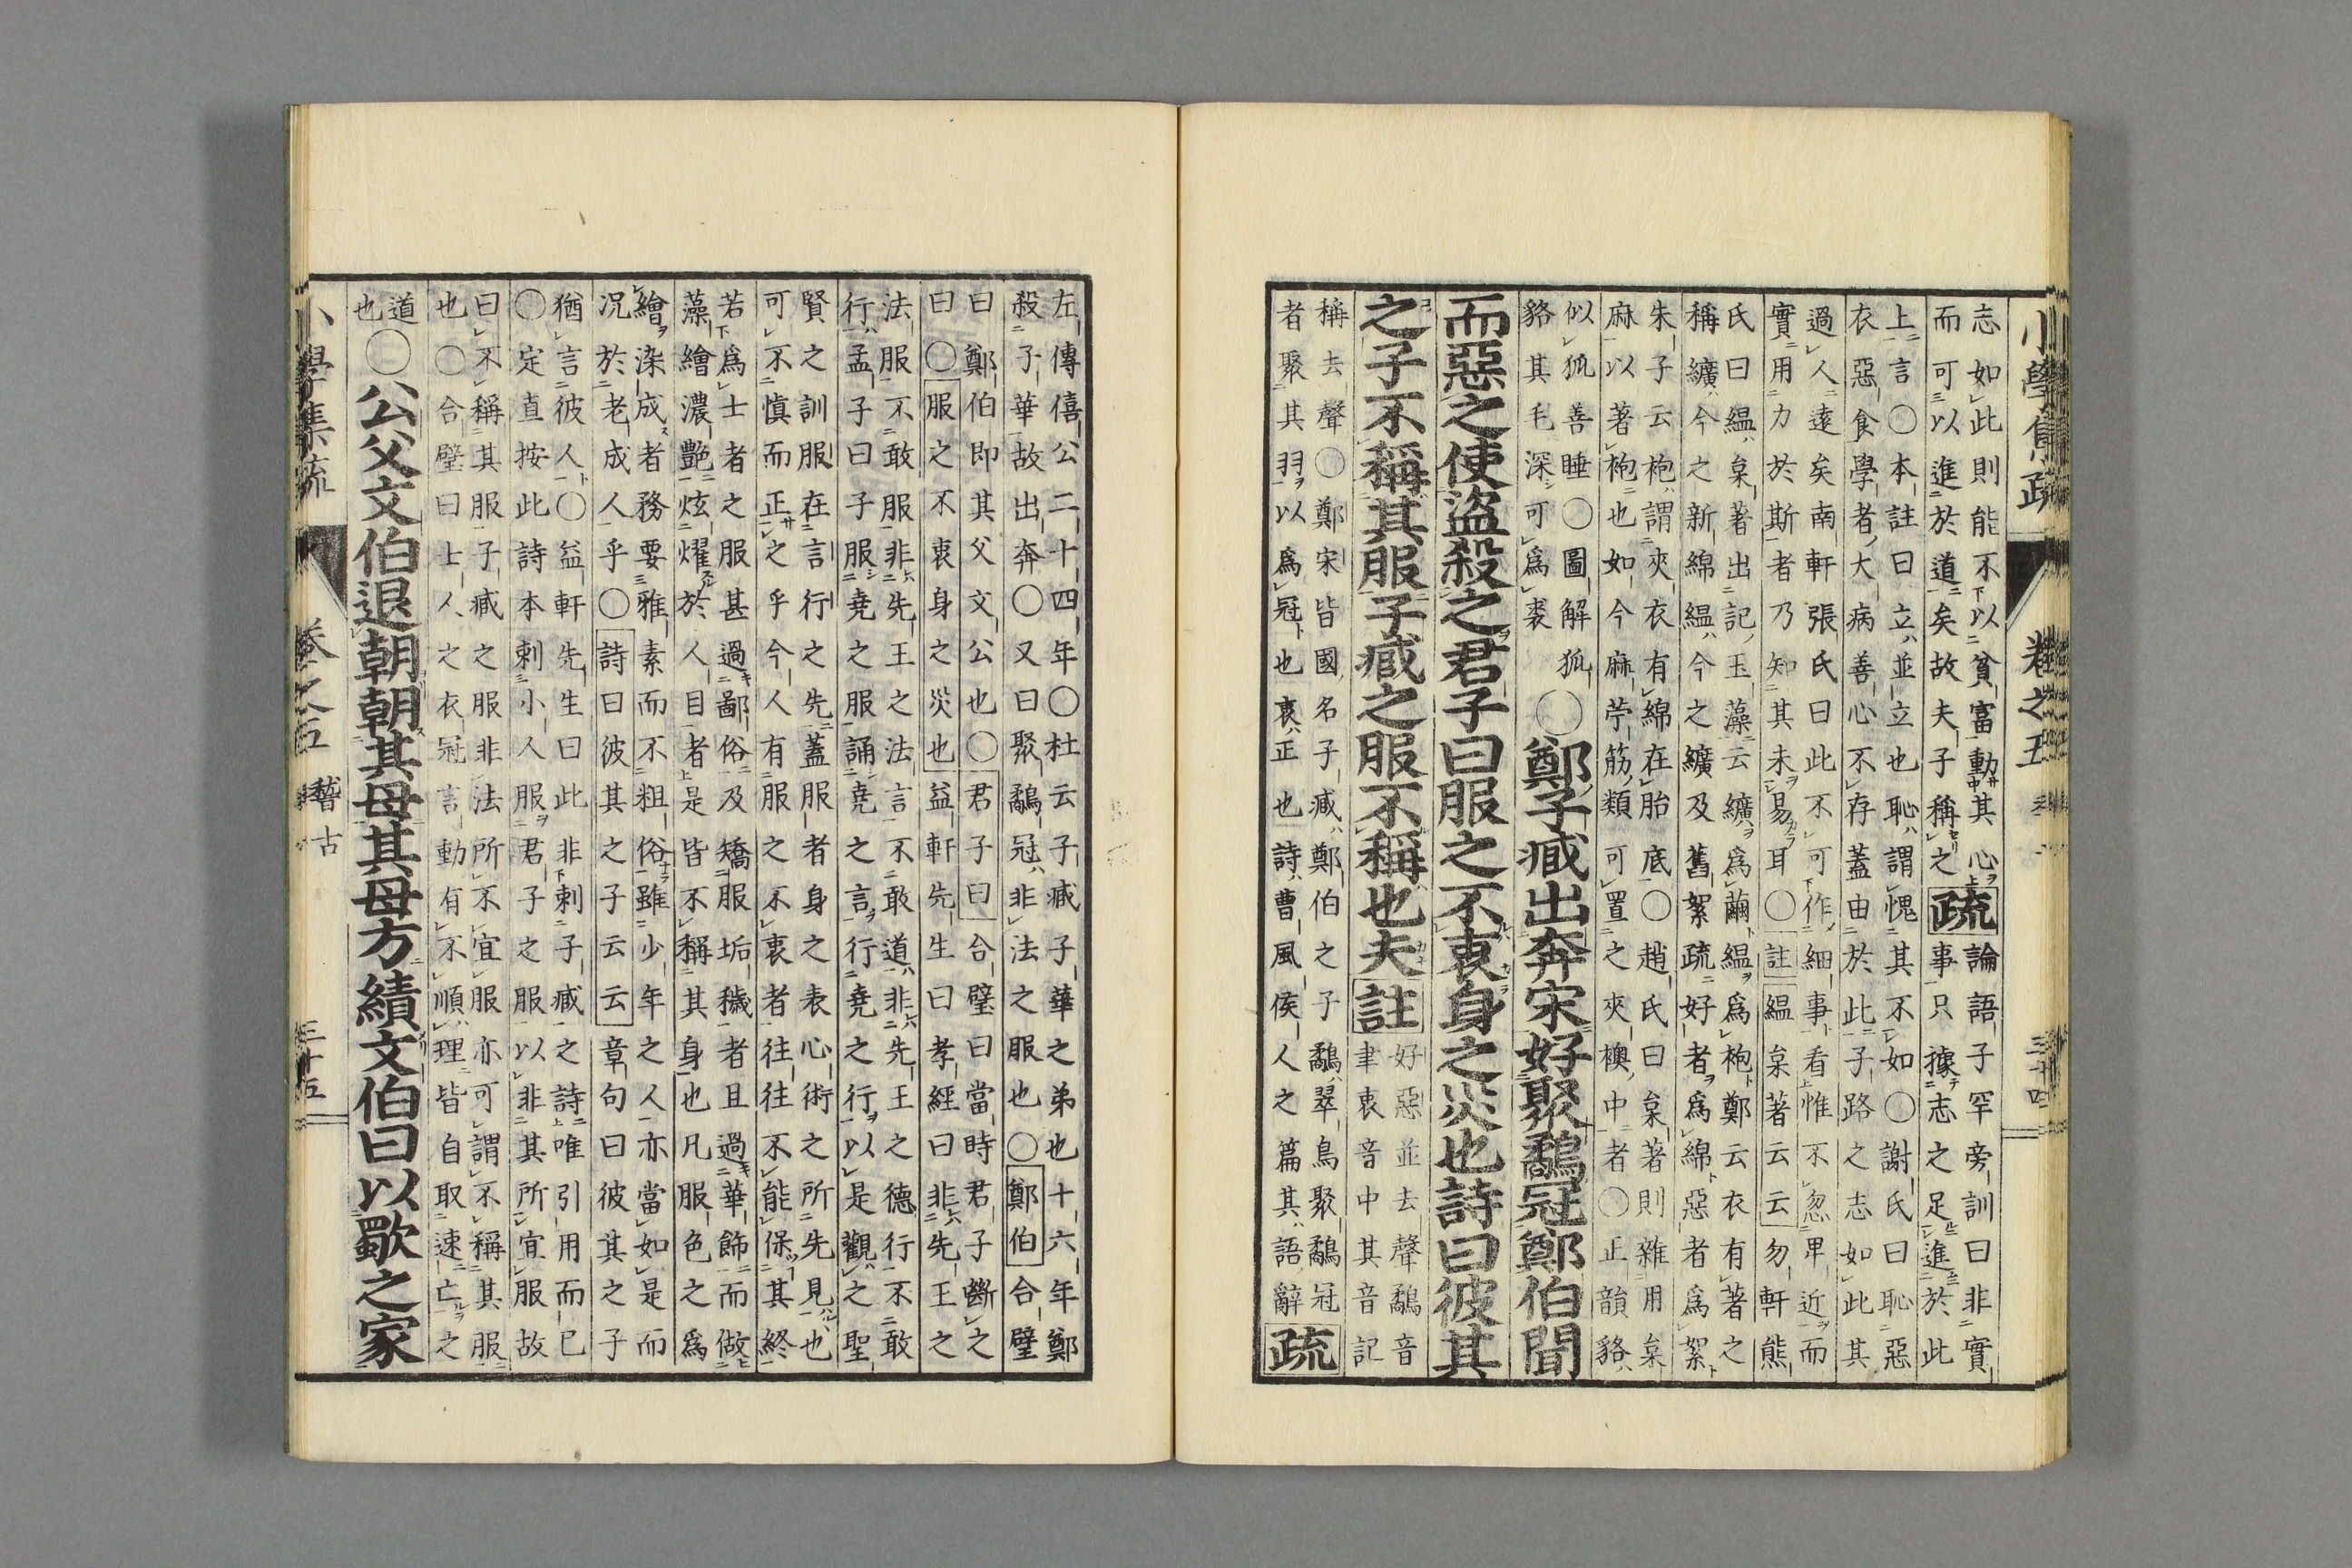 小學集疏 卷之五 三十四
志如此則能不以貧富動其心
而可以進於道矣故夫子稱之疏
論語子罕旁訓曰非實
事只據志之足進於此
上言○本註曰立並立也恥謂愧其不如○謝氏曰恥惡
衣惡食學者大病善心不存蓋由於此子路之志如此其
過人遠矣南軒張氏曰此不可作細事看惟不忽卑近而
實用力於斯者乃知其未易耳○註縕枲著云云勿軒熊
氏曰縕枲著出記玉藻云纊爲繭縕爲袍鄭云衣有著之
稱纊今之新綿縕今之纊及舊絮疏好者爲綿惡者爲絮
朱子云袍謂夾衣有綿在胎底○趙氏曰枲著則雜用枲
麻以著袍也如今麻苧筋類可置之夾襖中者○正韻貉
似狐善睡○圖解狐
貉其毛深可爲裘
○鄭子臧出奔宋好聚鷸冠鄭伯聞
而惡之使盜殺之君子曰服之不衷身之災也詩曰彼其
之子不稱其服子臧之服不稱也夫註
好惡並去聲鷸音
聿衷音中其音記
稱去聲○鄭宋皆國名子臧鄭伯之子鷸翠鳥聚鷸冠
者聚其羽以爲冠也衷正也詩曹風侯人之篇其語辭疏
左傳僖公二十四年○杜云子臧子華之弟也十六年鄭
殺子華故出奔○又曰聚鷸冠非法之服也○鄭伯合璧
曰鄭伯即其父文公也○君子曰合璧曰當時君子斷之
曰○服之不衷身之災也益軒先生曰孝經曰非先王之
法服不敢服非先王之法言不敢道非先王之德行不敢
行孟子曰子服堯之服誦堯之言行堯之行以是觀之聖
賢之訓服在言行之先蓋服者身之表心術之所先見也
可不慎而正之乎今人有服之不衷者往往不能保其終
若爲士者之服甚過鄙俗及矯服垢穢者且過華飾而做
藻繪濃艷炫燿於人目者是皆不稱其身也凡服色之爲
繪染成者務要雅素而不粗俗雖少年之人亦當如是而
况於老成人乎○詩曰彼其之子云云章句曰彼其之子
猶言彼人○益軒先生曰此非刺子臧之詩唯引用而已
○定直按此詩本刺小人服君子之服以非其所宜服故
曰不稱其服子臧之服非法所不宜服亦可謂不稱其服
也○合璧曰士人之衣冠言動有不順理皆自取速亡之
道也○公父文伯退朝朝其母其母方績文伯曰以歜之家
小學集疏 卷之五 稽古 三十五